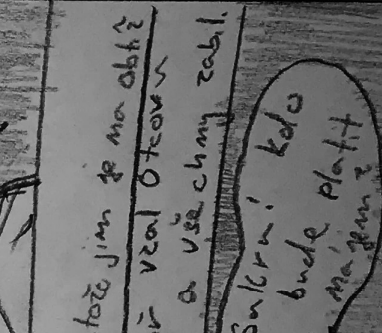 totiž jim je na obtíž
vzal Otcovu
a všechny zabil.
Sakra! Kdo
bude platit
nájem?